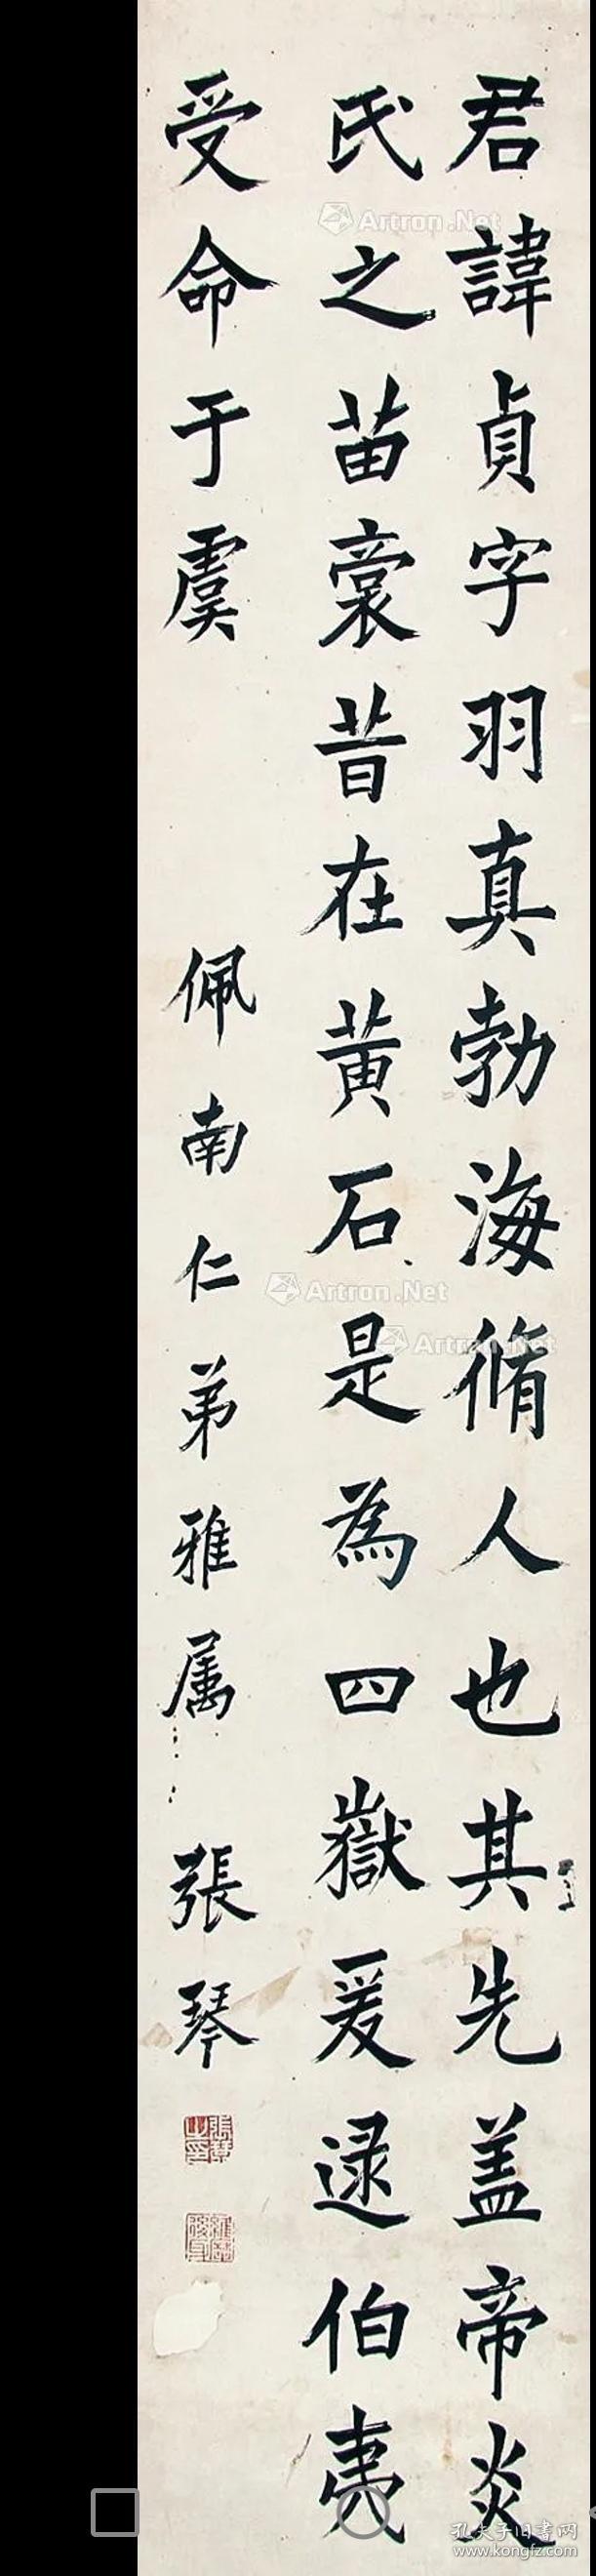 君諱貞字羽真勃海脩人也其先盖帝炎
氏之苗裔昔在黄石是為四嶽爰逮伯夷
受命于虞
佩南仁弟雅属
張琴
Artron.Net
Artron.Net
Artron.Net
孔夫子旧书网
www.kongfz.com